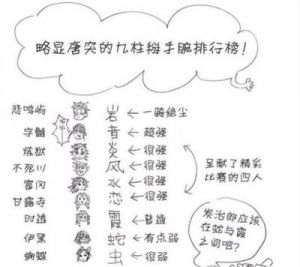 略显唐突的九柱掰手腕排行榜！
悲鸣屿 岩 ← 一骑绝尘
宇髄 音 ← 超强
炼狱 炎 ← 很强
不死川 风 ← 很强
富冈 水 ← 很强
甘露寺 恋 ← 很强
时透 霞 ← 普通
伊黑 蛇 ← 有点弱
蝴蝶 虫 ← 很弱
呈献了精彩
比赛的四人
炭治郎应该
在蛇与霞
之间吧？